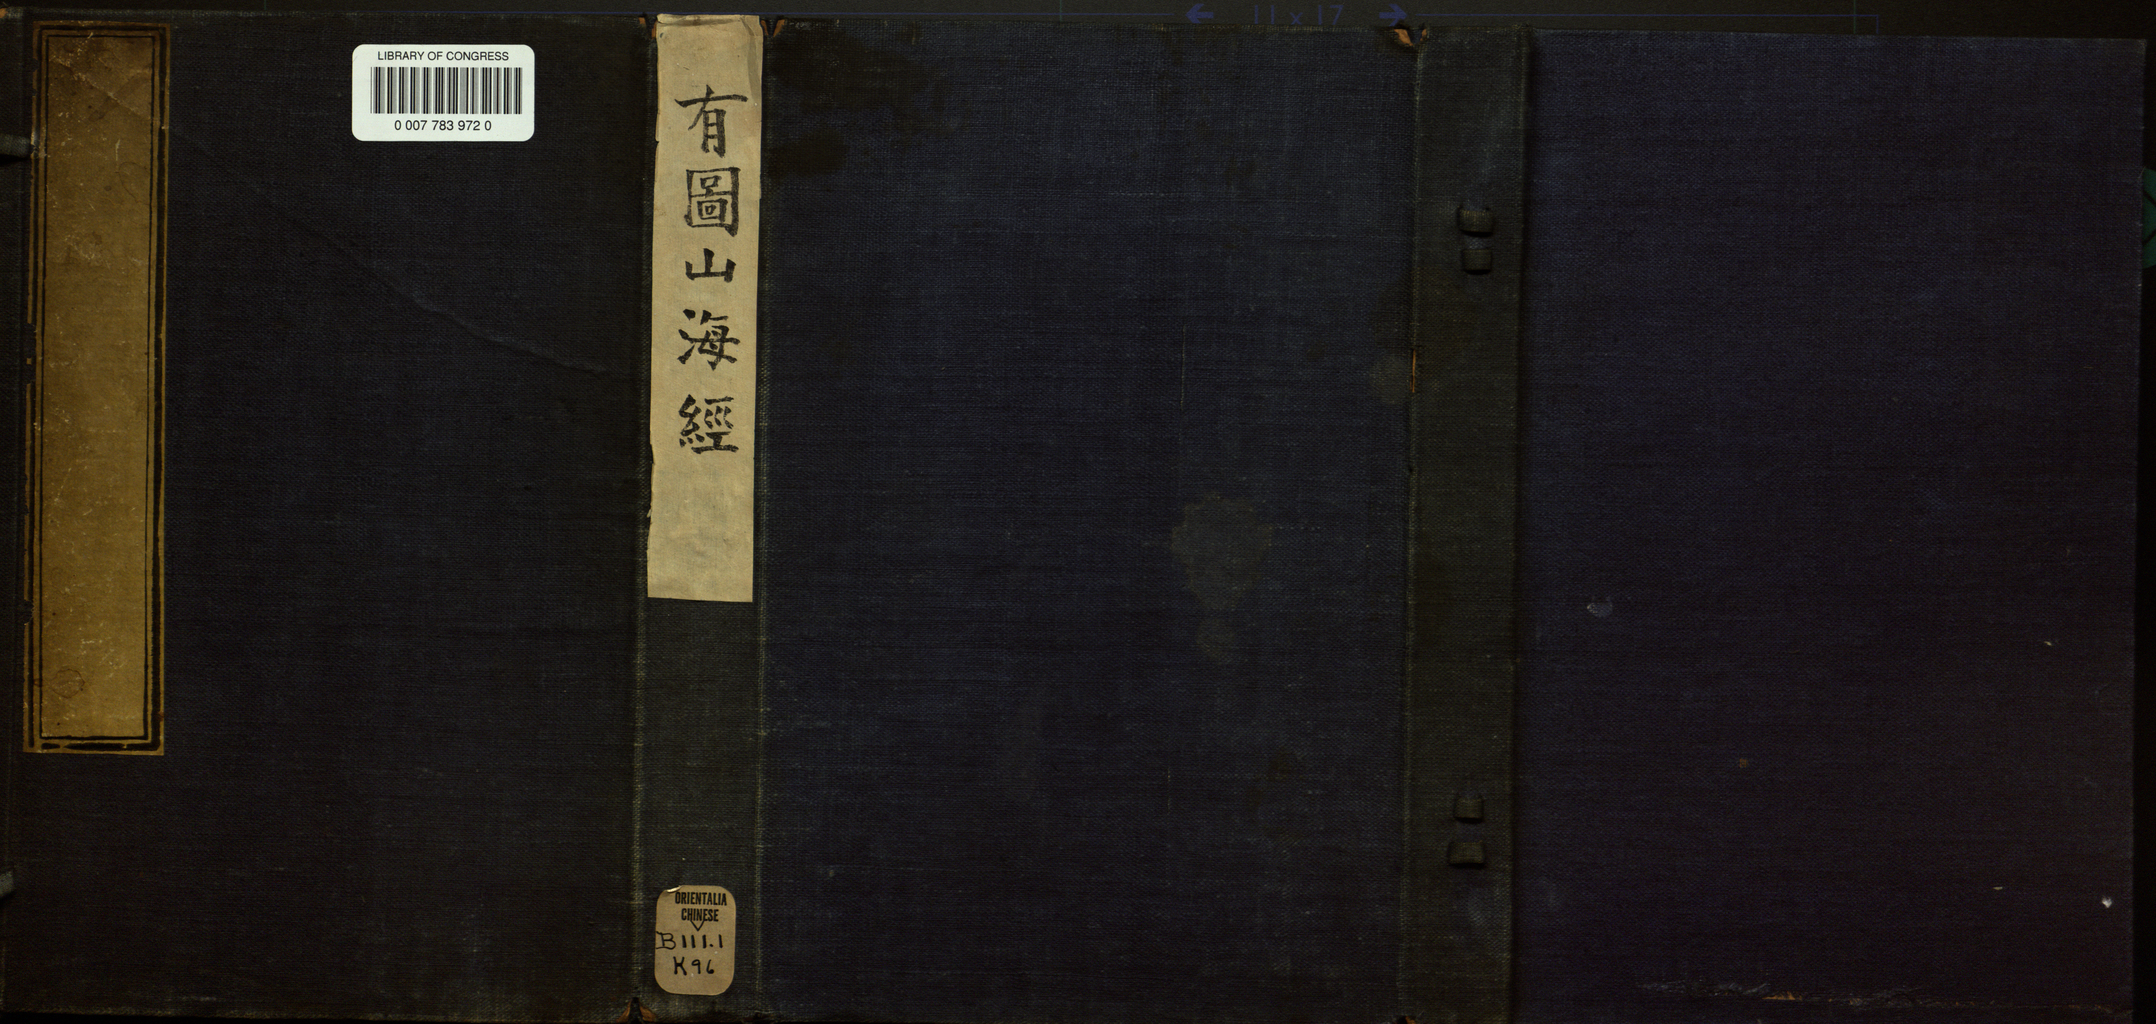 ← 11 x 17 →
LIBRARY OF CONGRESS
0 007 783 972 0
有圖山海經
ORIENTALIA
CHINESE
B111.1
K96